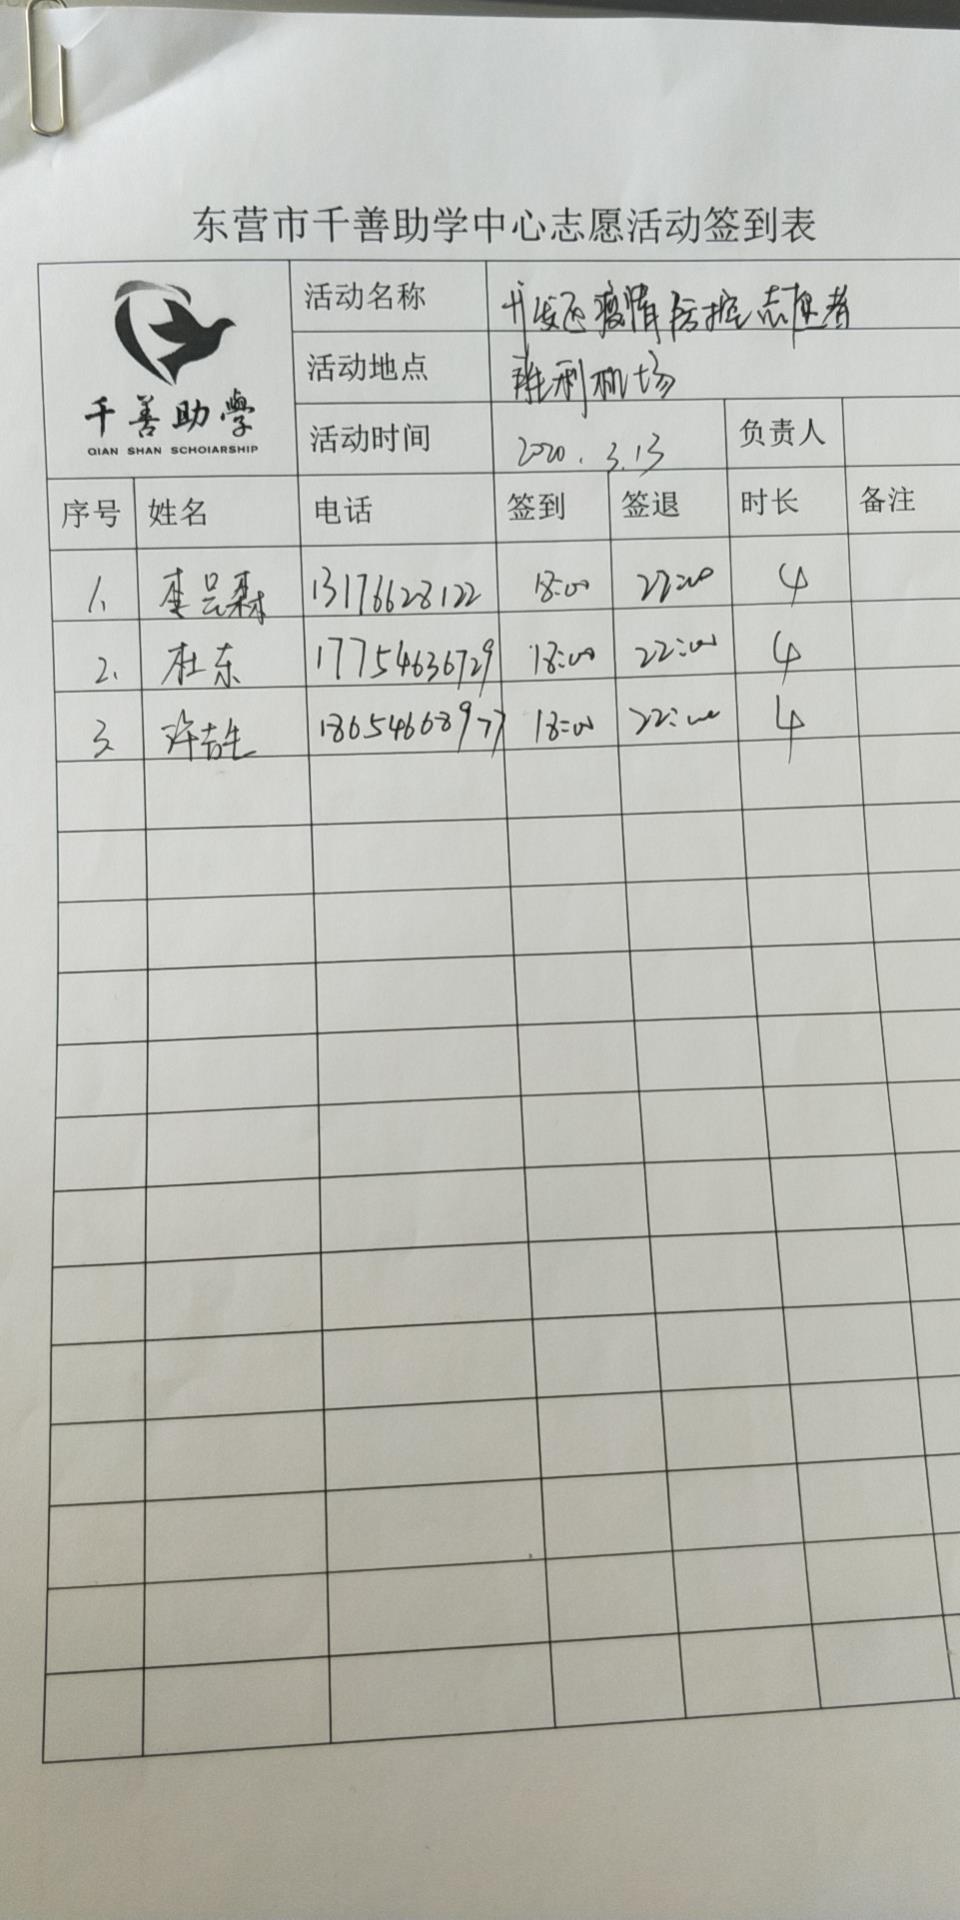 东营市千善助学中心志愿活动签到表
千善助學
QIAN SHAN SCHOIARSHIP
活动名称 开发区疫情防控志愿者
活动地点 胜利机场
活动时间 2020.3.13 负责人
序号 姓名 电话 签到 签退 时长 备注
1. 李昙森 13176628122 18:00 22:00 4
2. 杜东 17754636729 18:00 22:00 4
3. 许吉生 18654668977 18:00 22:00 4